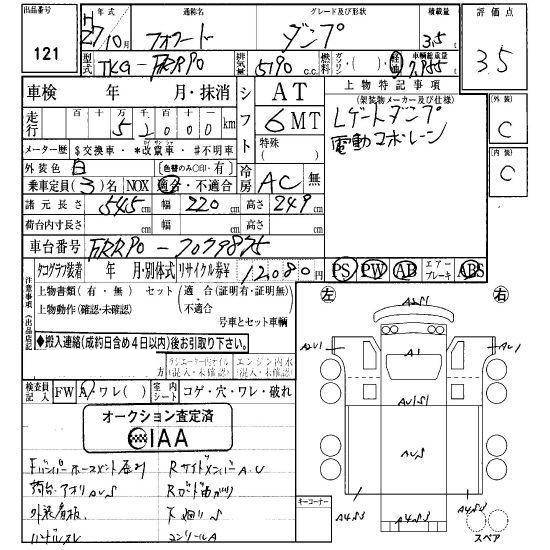 出品番号 年式 通称名 グレード及び形状 積載量 評価点
121 H27 10月 フォワード ダンプ 3.5t 3.5
型式 TKG-FRR90 排気量 5190 c.c. 燃料 ガソリン・( )・軽油 車輌総重量 7,955
車検 年 月・抹消 シフト AT 上物特記事項
走行 百 十 万 千 百 十
5 2 0 0 0 km 6 MT (架装物メーカー及び仕様)
Lゲートダンプ
電動コボレーン
メーター歴 $交換車・*改竄車・#不明車 特殊( )
外装色 白 [色替のみ○印・有]
乗車定員(3)名 NOX 適合・不適合 冷房 AC 無
諸元長さ 545cm 幅 220cm 高さ 249cm
荷台内寸長さ cm 幅 cm 高さ cm
車台番号 FRR90-
タコグラフ装着 年 月・別体式 リサイクル券¥ 12,080円 PS PW AB エアーブレーキ ABS
注意事項(出品店記
上物書類(有・無) セット(適合(証明有・証明無)・不適合
上物動作(確認・未確認) 号車とセット車輌
◆搬入連絡(成約日含め4日以内)後お引取り下さい。
エンジン内水(混入・未混入)
左 右
検査員記入 FW A/ワレ( ) 室内シート コゲ・穴・ワレ・破れ
オークション査定済
IAA
外装 C
内装 C
A1
AUS1
AUS
荷台アオリAUS
外装看板
Rサイドメンバー A・U
Rガード曲がり
下廻りS
コンソールA
キーコーナー
スペア